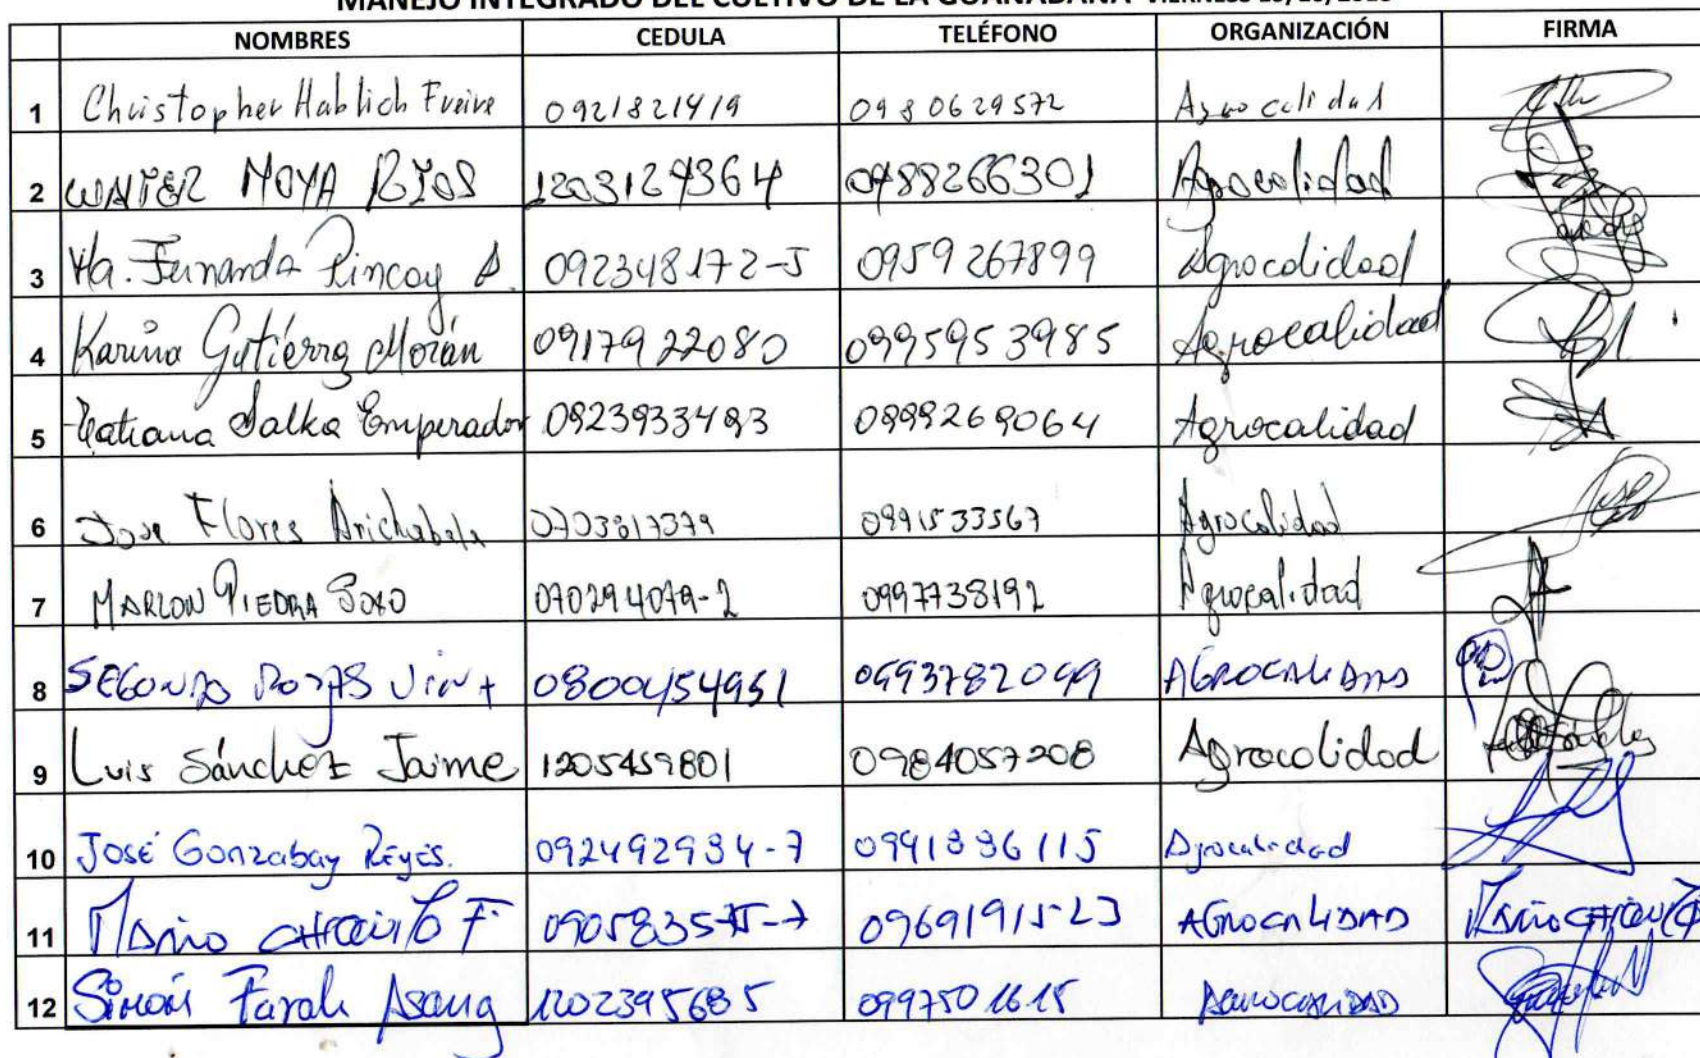 MANEJO INTEGRADO DEL CULTIVO DE LA GUANABANA
NOMBRES CEDULA TELÉFONO ORGANIZACIÓN FIRMA
1 Christopher Hablich Freire 0921821419 0980629572 Agrocalidad
2 WALTER MOYA RIOS 1203129364 0988266301 Agrocalidad
3 Ma. Fernanda Pincay A. 092348172-5 0959267899 Agrocalidad
4 Karina Gutiérrez Morán 0917922080 0995953985 Agrocalidad
5 Tatiana Salka Emperador 0923933493 0999269064 Agrocalidad
6 Jose Flores 0703817379 0991533567 Agrocalidad
7 MARLON PIEDRA 070294079-2 0997738192 Agrocalidad
8 SEGUNDO ROJAS 0800454951 0993782099 AGROCALIDAD
9 Luis Sánchez Jaime 1205459801 0984057208 Agrocalidad
10 José Gonzabay Reyes. 092492934-7 0941336115 Agrocalidad
11 MARIO F. 090583575-7 0969191523 AGROCALIDAD
12 Simón Farah Asang 1202395685 0997501615 AGROCALIDAD